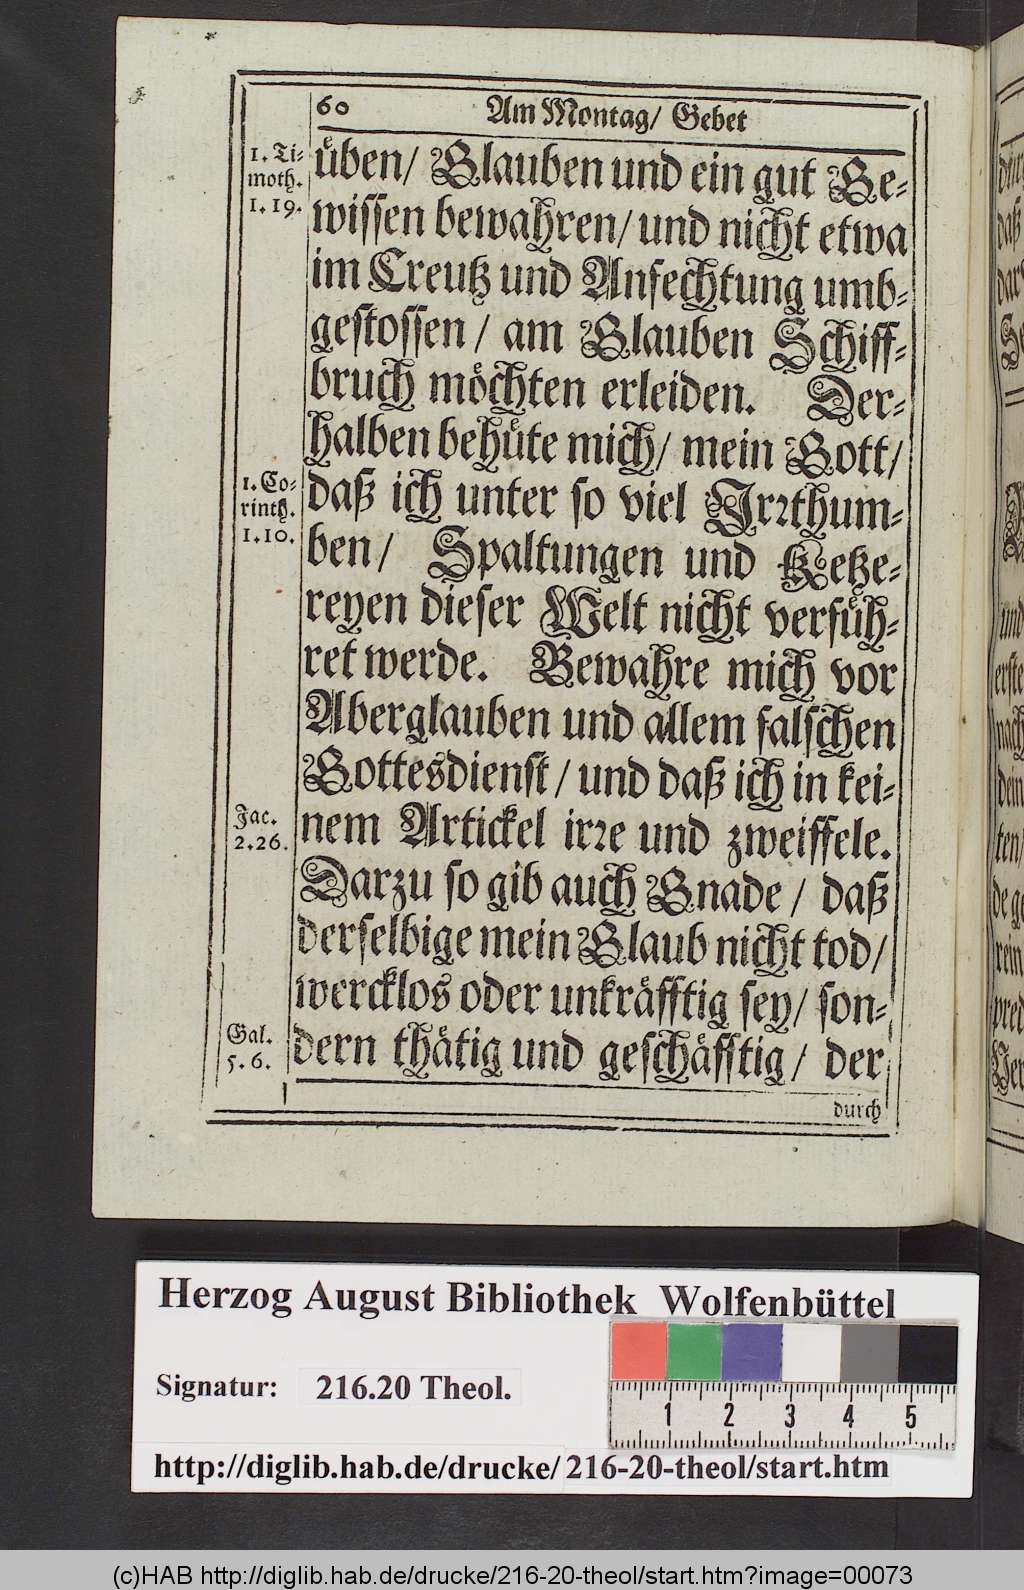 60 Am Montag/ Gebet
1. Ti-
moth.
1. 19.
üben/ Glauben und ein gut Ge-
wissen bewahren/ und nicht etwa
im Creutz und Anfechtung umb-
gestossen/ am Glauben Schiff-
bruch möchten erleiden. Der-
halben behüte mich/ mein Gott/
1. Co-
rinth.
1. 10.
daß ich unter so viel Irrthum-
ben/ Spaltungen und Ketze-
reyen dieser Welt nicht verfüh-
ret werde. Bewahre mich vor
Aberglauben und allem falschen
Gottesdienst/ und daß ich in kei-
nem Artickel irre und zweiffele.
Jac.
2. 26.
Darzu so gib auch Gnade/ daß
derselbige mein Glaub nicht tod/
wercklos oder unkräfftig sey/ son-
Gal.
5. 6.
dern thätig und geschäfftig/ der
durch
din
daß
dar
Se
und
erste
nach
dein
ten/
de ge
rein
pred
Ver
Herzog August Bibliothek Wolfenbüttel
Signatur: 216.20 Theol.
1 2 3 4 5
http://diglib.hab.de/drucke/216-20-theol/start.htm
(c)HAB http://diglib.hab.de/drucke/216-20-theol/start.htm?image=00073